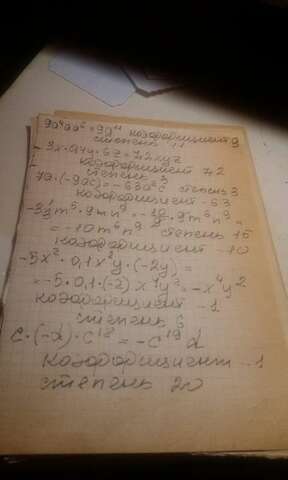 9a⁴aa⁶ = 9a¹¹ коэффициент 9
степень 11
3x · 0,4y · 6z = 7,2xyz
коэффициент 7,2
степень 3
7a · (-9ac) = -63a²c степень 3
коэффициент -63
-3⅓m⁶ · 9mn⁹ = -10/3 · 9m⁶n⁹ =
= -10m⁶n⁹ степень 15
коэффициент -10
-5x² · 0,1x²y · (-2y) =
= -5 · 0,1 · (-2) x⁴y² = -x⁴y²
коэффициент -1
степень 6
c · (-d) · c¹⁸ = -c¹⁹d
коэффициент -1
степень 20